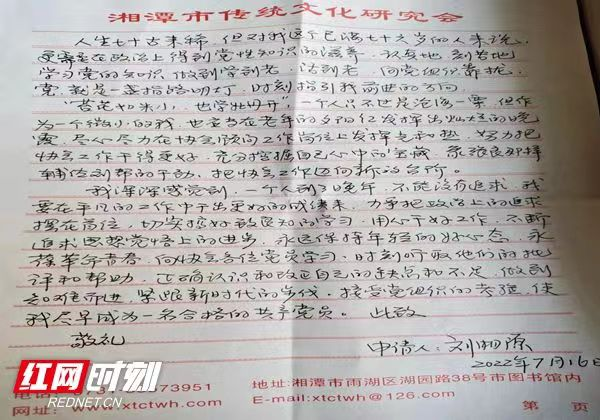 湘潭市传统文化研究会
人生七十古来稀，但对我这个已满七十之岁的人来说，
更需要在政治上得到党性知识的滋养，认真地、刻苦地
学习党的知识，做到学到老、活到老，向党组织靠拢，
党，就是一盏指路明灯，时刻指引我前进的方向。
"苔花如米小，也学牡丹开"一个人只不过是沧海一粟，但作
为一个微小的我，也应当在老年的夕阳红发挥出灿烂的晚
霞，尽心尽力在协会顾问工作岗位上发挥光和热，努力把
协会工作干得更好，充分挖掘自己心中的宝藏，
辅佐到帮的干劲，把协会工作迈向新的台阶。
我深深感觉到，一个人到了晚年，不能没有追求，我
要在平凡的工作中干出更好的成绩来，力争把政治上的追求
摆在首位，切实按好党知的学习，用心干好工作，不断
追求思想党悟上的进步，永远保持年轻的好心态，永
葆革命青春，向协会各位党员学习，时刻听取他们的批
评和帮助，正确认识和改正自己的缺点和不足，做到
知难而进，紧跟新时代的步伐，接受党组织的考验，使
我尽早成为一名合格的共产党员。 此致
敬礼
申请人：刘湘源
2022年7月16日
红网时刻
REDNET.CN
73951
地址:湘潭市雨湖区湖园路38号市图书馆内
网址: www.xtctwh.com
E-mail:xtctwh@126.com
第 页